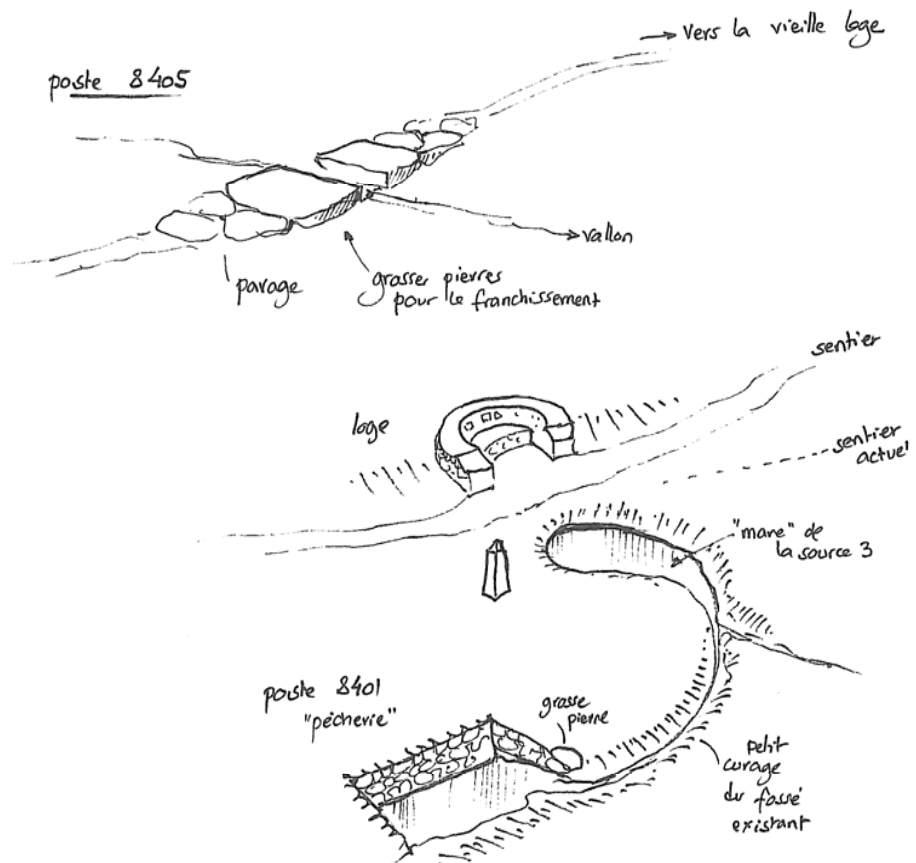 → vers la vieille loge
poste 8405
→ vallon
pavage
grosses pierres
pour le franchissement
sentier
loge
sentier
actuel
"mare" de
la source 3
poste 8401
"pêcherie"
grosse
pierre
petit
curage
du fossé
existant